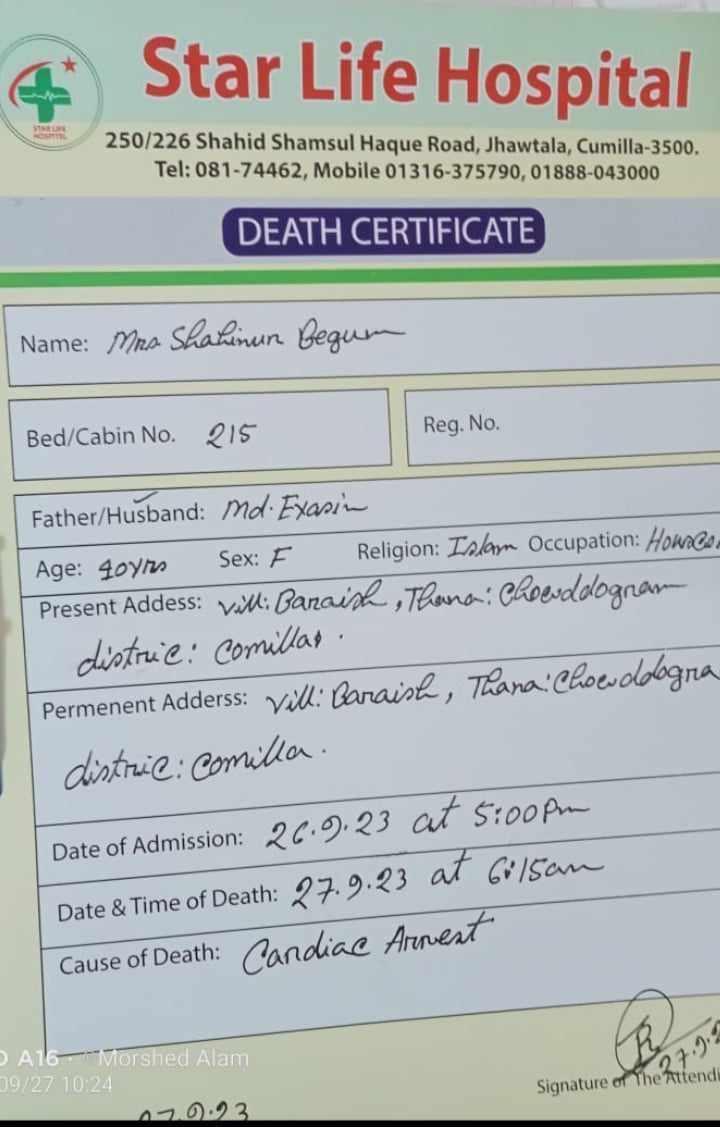 STAR LIFE
HOSPITAL
Star Life Hospital
250/226 Shahid Shamsul Haque Road, Jhawtala, Cumilla-3500.
Tel: 081-74462, Mobile 01316-375790, 01888-043000
DEATH CERTIFICATE
Name: Mrs Shahinur Begum
Bed/Cabin No. 215
Reg. No.
Father/Husband: Md. Exasin
Age: 40yrs Sex: F Religion: Islam Occupation:
Present Addess: vill: Baraish, Thana: Chowddogram
districe: Comilla
Permenent Adderss: Vill: Baraish, Thana: Chowddogra
districe: Comilla.
Date of Admission: 26.9.23 at 5:00 Pm
Date & Time of Death: 27.9.23 at 6:15am
Cause of Death: Cardiac Arrest
27.9.2
Signature of The Attendi
A16 Morshed Alam
09/27 10:24
27.9.23